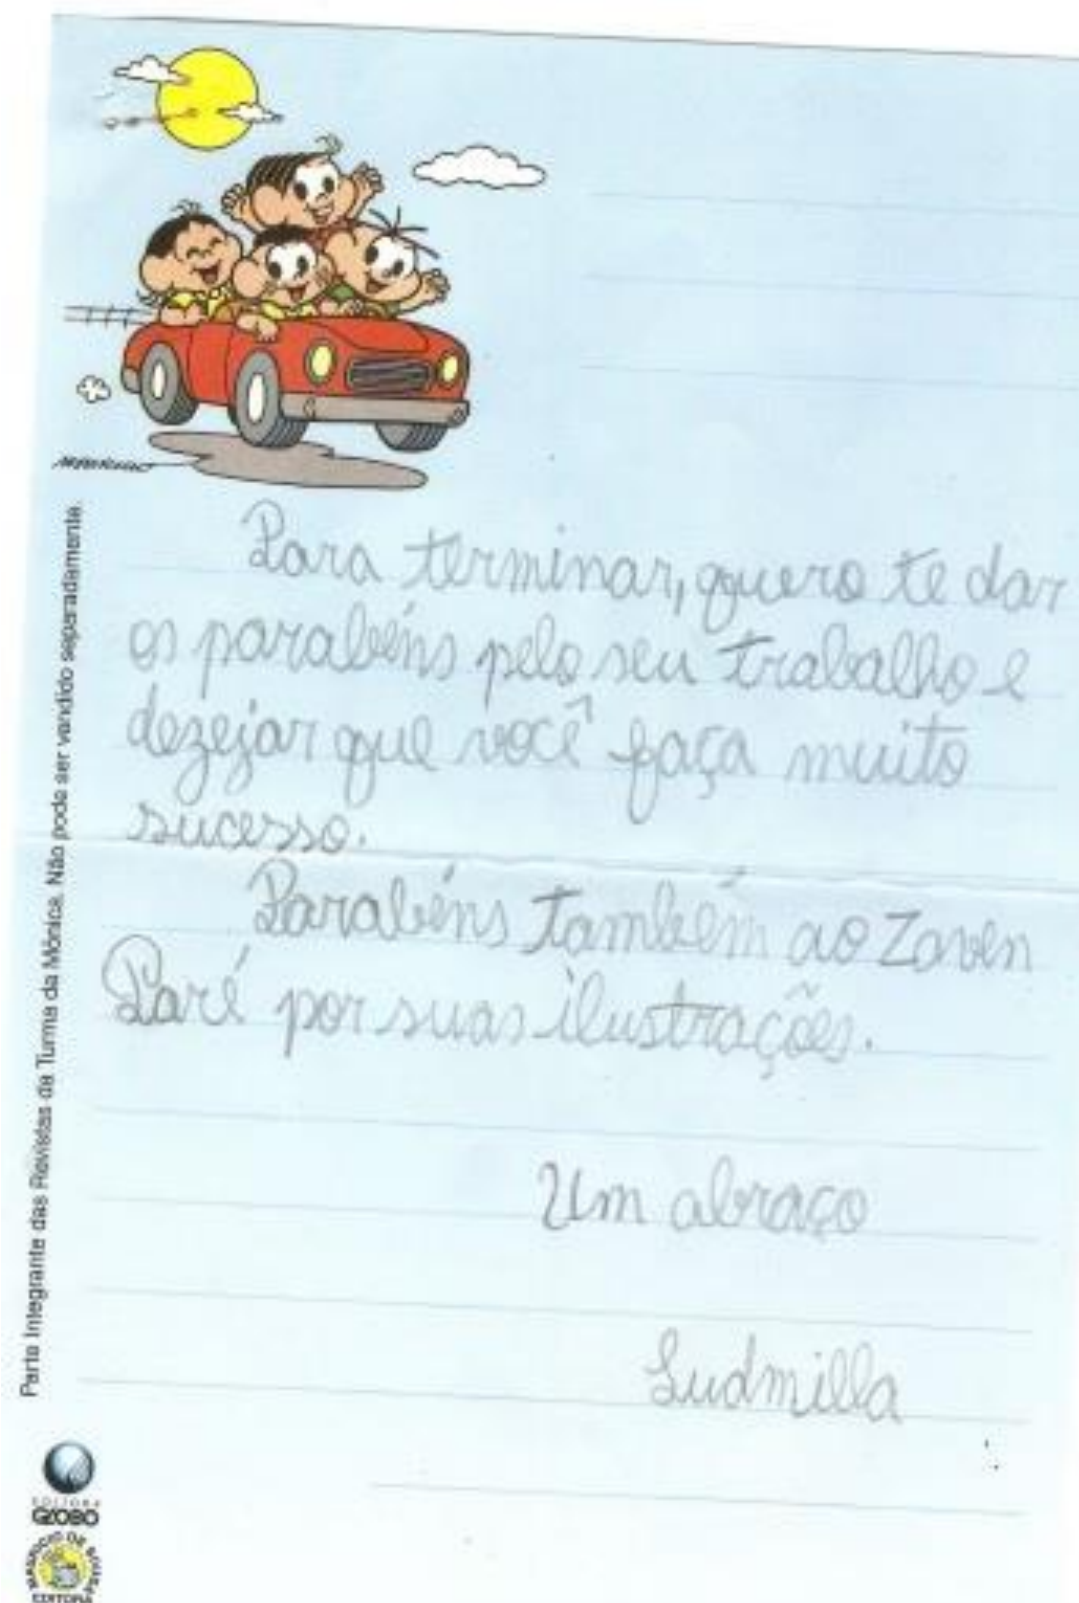 Mauricio
Para terminar, quero te dar
os parabéns pelo seu trabalho e
dezejar que você faça muito
sucesso.
Parabéns também ao Zaven
Paré por suas ilustrações.
Um abraço
Ludmilla
Parte Integrante das Revistas da Turma da Mônica. Não pode ser vendido separadamente.
EDITORA
GLOBO
MAURICIO DE SOUSA
EDITORA